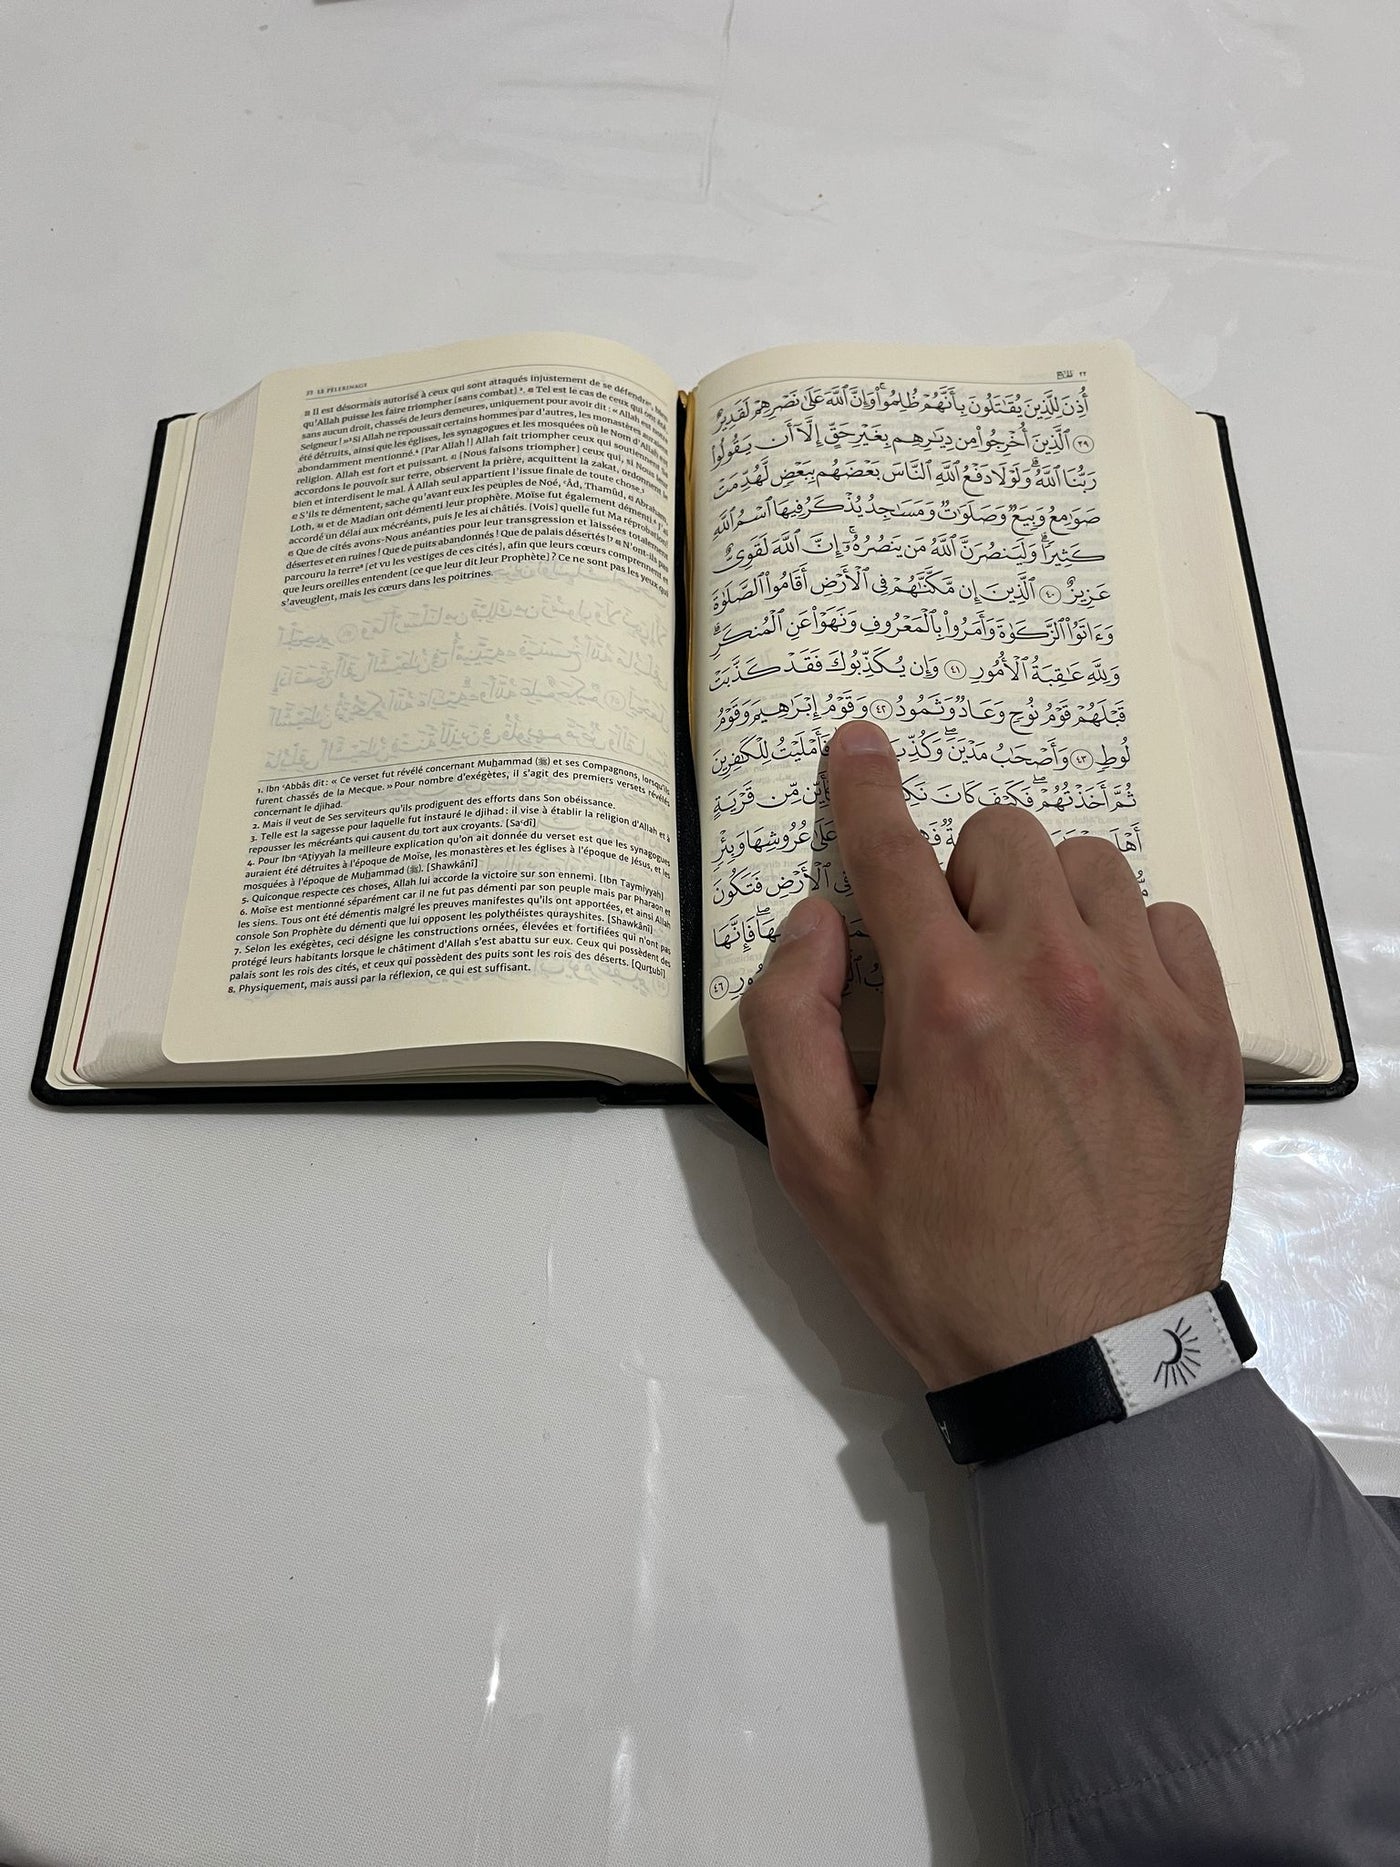 22 LE PÈLERINAGE
Il est désormais autorisé à ceux qui sont attaqués injustement de se défendre
qu'Allah puisse les faire triompher [sans combat]². Tel est le cas de ceux qui ont été
sans aucun droit, chassés de leurs demeures, uniquement pour avoir dit : « Allah est notre
Seigneur ! »³ Si Allah ne repoussait certains hommes par d'autres, les monastères auraient
été détruits, ainsi que les églises, les synagogues et les mosquées où le Nom d'Allah est
abondamment mentionné.⁴ [Par Allah !] Allah fait triompher ceux qui soutiennent Sa
religion. Allah est fort et puissant. [Nous faisons triompher] ceux qui, si Nous leur
accordons le pouvoir sur terre, observent la prière, acquittent la zakat, ordonnent le
bien et interdisent le mal. À Allah seul appartient l'issue finale de toute chose.⁵
S'ils te démentent, sache qu'avant eux les peuples de Noé, ʿÂd, Thamûd, Abraham,
Loth, et de Madian ont démenti leur prophète. Moïse fut également démenti.⁶ J'ai
accordé un délai aux mécréants, puis Je les ai châtiés. [Vois] quelle fut Ma réprobation !
Que de cités avons-Nous anéanties pour leur transgression et laissées totalement
désertes et en ruines ! Que de puits abandonnés ! Que de palais désertés !⁷ N'ont-ils pas
parcouru la terre⁸ [et vu les vestiges de ces cités], afin que leurs cœurs comprennent et
que leurs oreilles entendent [ce que leur dit leur Prophète] ? Ce ne sont pas les yeux qui
s'aveuglent, mais les cœurs dans les poitrines.
1. Ibn ʿAbbâs dit : « Ce verset fut révélé concernant Muhammad (ﷺ) et ses Compagnons, lorsqu'ils
furent chassés de la Mecque. » Pour nombre d'exégètes, il s'agit des premiers versets révélés
concernant le djihad.
2. Mais il veut de Ses serviteurs qu'ils prodiguent des efforts dans Son obéissance.
3. Telle est la sagesse pour laquelle fut instauré le djihad : il vise à établir la religion d'Allah et à
repousser les mécréants qui causent du tort aux croyants. [Saʿdî]
4. Pour Ibn ʿAṭiyyah la meilleure explication qu'on ait donnée du verset est que les synagogues
auraient été détruites à l'époque de Moïse, les monastères et les églises à l'époque de Jésus, et les
mosquées à l'époque de Muhammad (ﷺ). [Shawkânî]
5. Quiconque respecte ces choses, Allah lui accorde la victoire sur son ennemi. [Ibn Taymiyyah]
6. Moïse est mentionné séparément car il ne fut pas démenti par son peuple mais par Pharaon et
les siens. Tous ont été démentis malgré les preuves manifestes qu'ils ont apportées, et ainsi Allah
console Son Prophète du démenti que lui opposent les polythéistes qurayshites. [Shawkânî]
7. Selon les exégètes, ceci désigne les constructions ornées, élevées et fortifiées qui n'ont pas
protégé leurs habitants lorsque le châtiment d'Allah s'est abattu sur eux. Ceux qui possèdent des
palais sont les rois des cités, et ceux qui possèdent des puits sont les rois des déserts. [Qurṭubî]
8. Physiquement, mais aussi par la réflexion, ce qui est suffisant.
٢٢ الحج
أُذِنَ لِلَّذِينَ يُقَٰتَلُونَ بِأَنَّهُمْ ظُلِمُواْۚ وَإِنَّ ٱللَّهَ عَلَىٰ نَصْرِهِمْ لَقَدِيرٌ
٣٩ ٱلَّذِينَ أُخْرِجُواْ مِن دِيَٰرِهِم بِغَيْرِ حَقٍّ إِلَّآ أَن يَقُولُواْ
رَبُّنَا ٱللَّهُۗ وَلَوْلَا دَفْعُ ٱللَّهِ ٱلنَّاسَ بَعْضَهُم بِبَعْضٍ لَّهُدِّمَتْ
صَوَٰمِعُ وَبِيَعٌ وَصَلَوَٰتٌ وَمَسَٰجِدُ يُذْكَرُ فِيهَا ٱسْمُ ٱللَّهِ
كَثِيرًاۗ وَلَيَنصُرَنَّ ٱللَّهُ مَن يَنصُرُهُۥٓۚ إِنَّ ٱللَّهَ لَقَوِىٌّ
عَزِيزٌ ٤٠ ٱلَّذِينَ إِن مَّكَّنَّٰهُمْ فِى ٱلْأَرْضِ أَقَامُواْ ٱلصَّلَوٰةَ
وَءَاتَوُاْ ٱلزَّكَوٰةَ وَأَمَرُواْ بِٱلْمَعْرُوفِ وَنَهَوْاْ عَنِ ٱلْمُنكَرِۗ
وَلِلَّهِ عَٰقِبَةُ ٱلْأُمُورِ ٤١ وَإِن يُكَذِّبُوكَ فَقَدْ كَذَّبَتْ
قَبْلَهُمْ قَوْمُ نُوحٍ وَعَادٌ وَثَمُودُ ٤٢ وَقَوْمُ إِبْرَٰهِيمَ وَقَوْمُ
لُوطٍ ٤٣ وَأَصْحَٰبُ مَدْيَنَۖ وَكُذِّبَ فَأَمْلَيْتُ لِلْكَٰفِرِينَ
ثُمَّ أَخَذْتُهُمْۖ فَكَيْفَ كَانَ مِّن قَرْيَةٍ
عَلَىٰ عُرُوشِهَا وَبِئْرٍ
فِى ٱلْأَرْضِ فَتَكُونَ
فَإِنَّهَا
٤٦